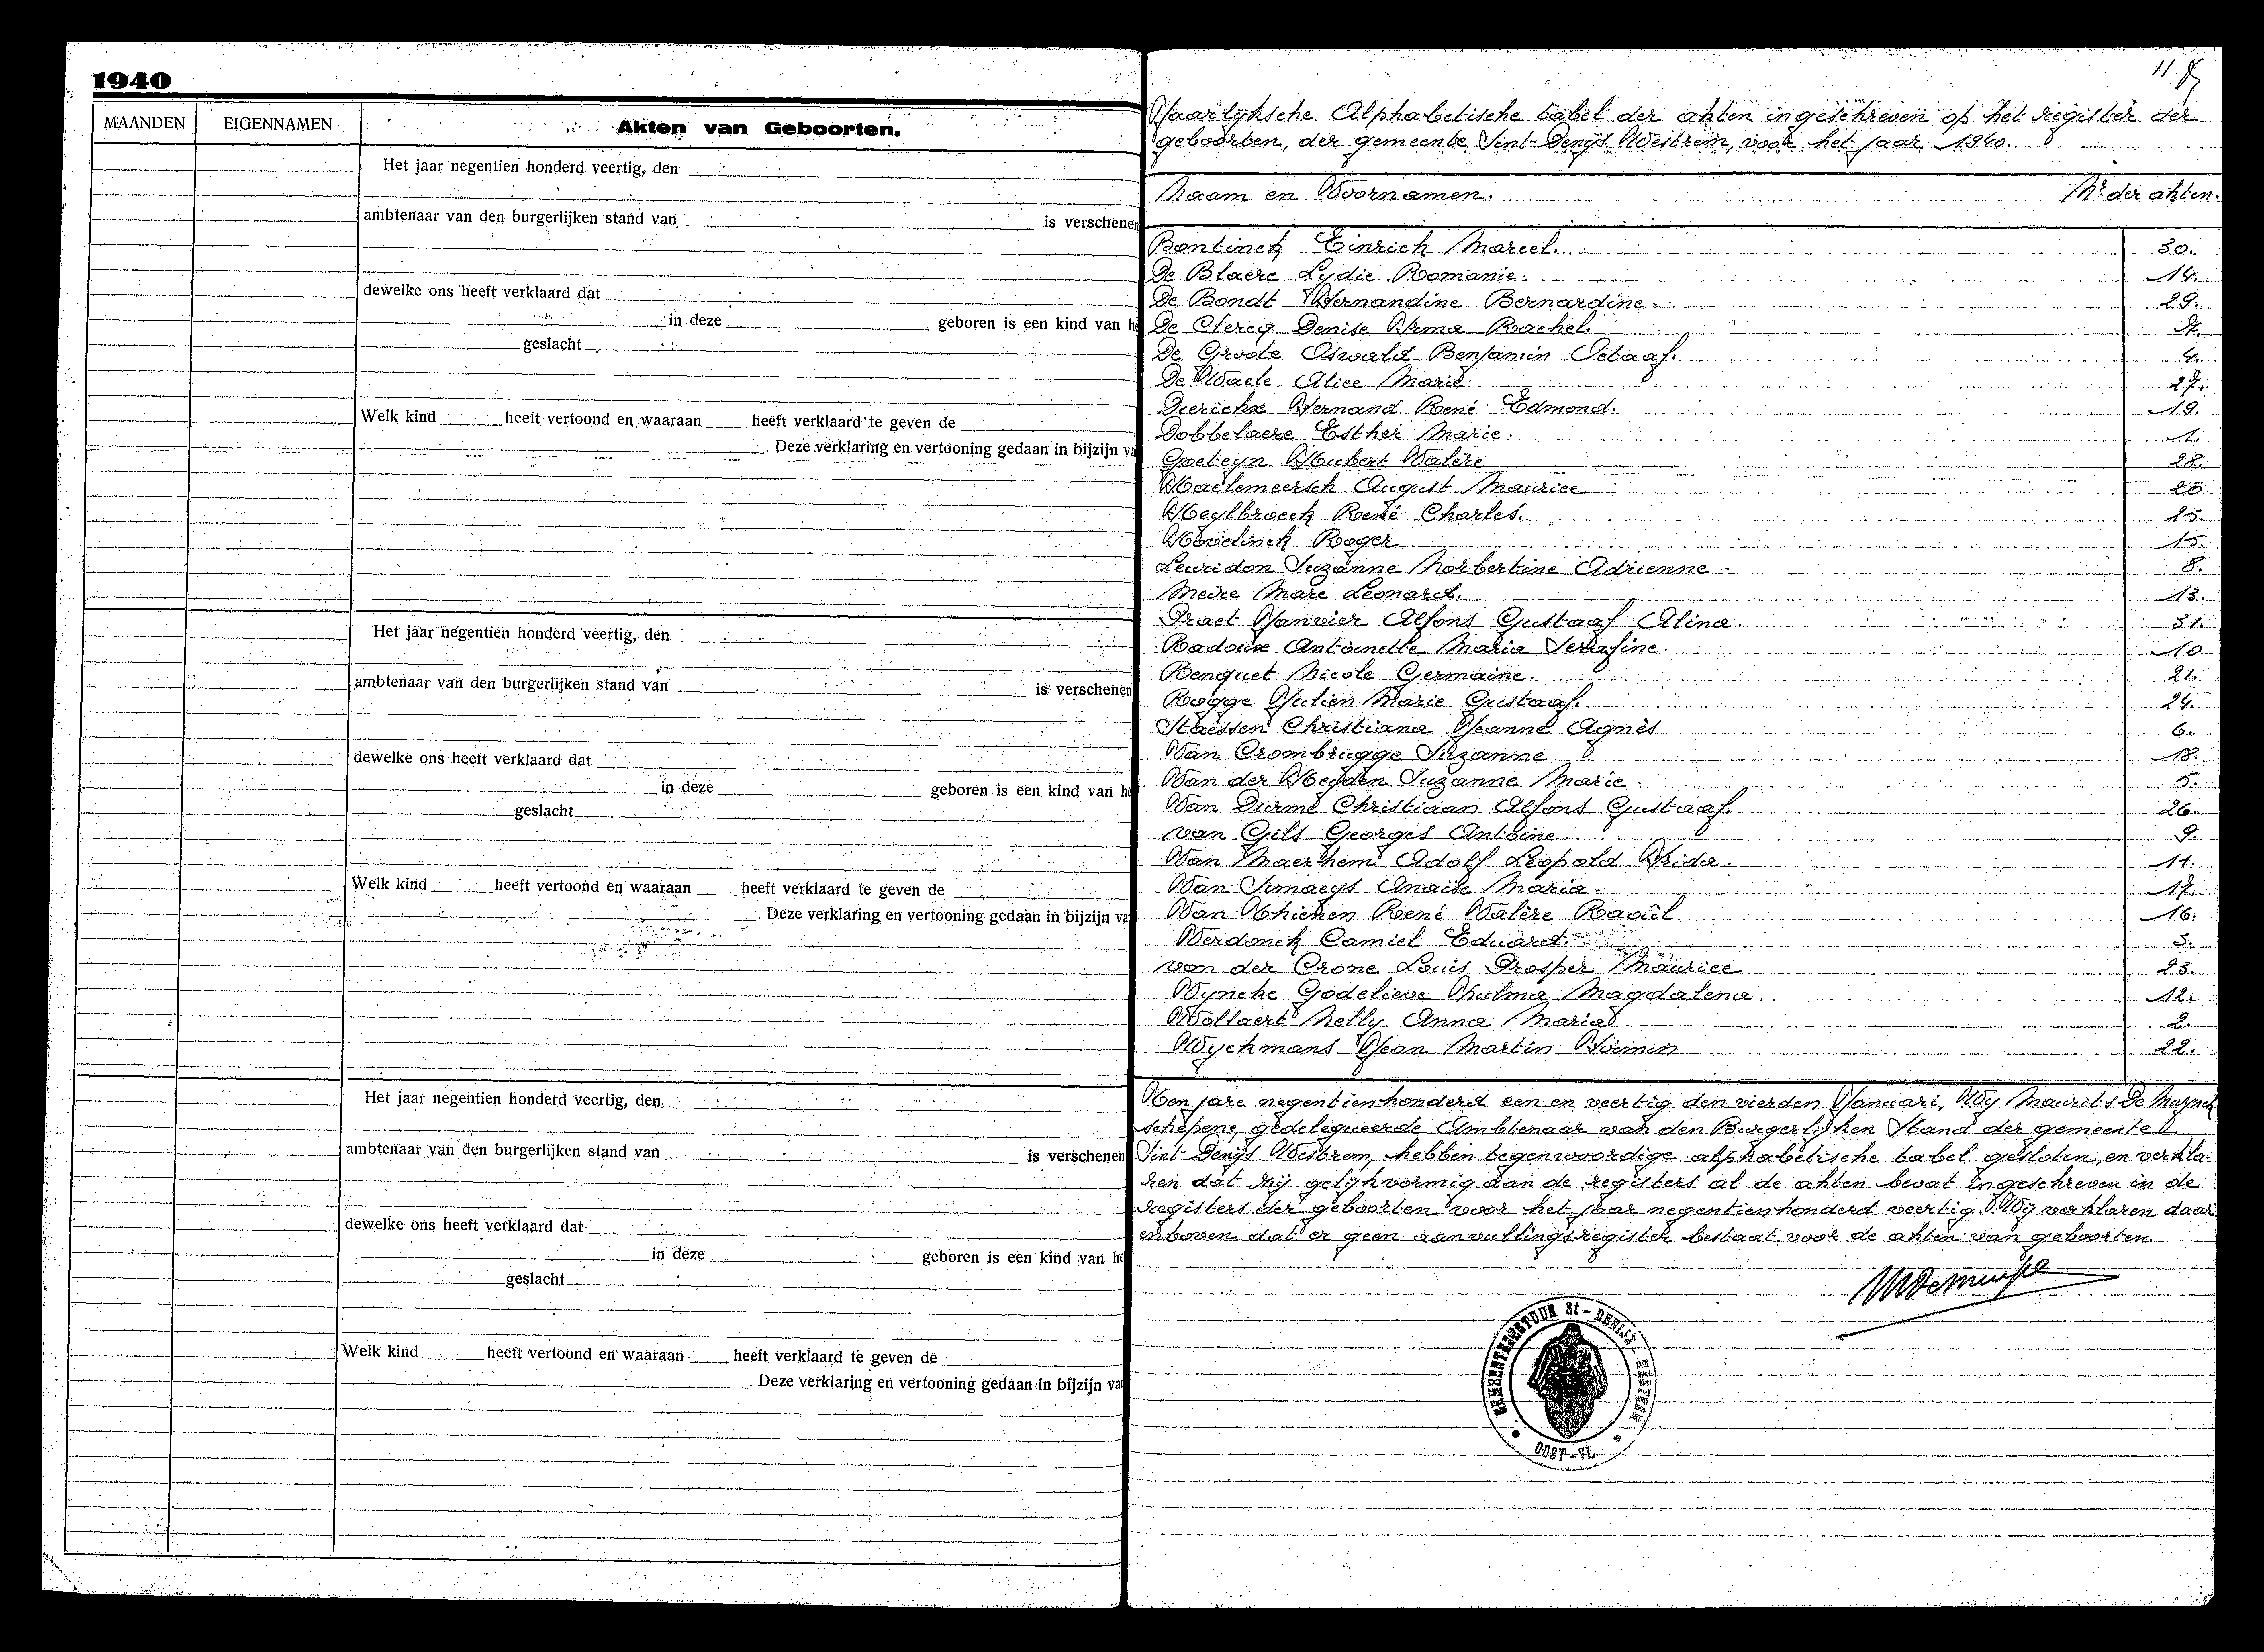 1940
MAANDEN
EIGENNAMEN
Akten van Geboorten.
Het jaar negentien honderd veertig, den
ambtenaar van den burgerlijken stand van
is verschenen
dewelke ons heeft verklaard dat
in deze
geboren is een kind van h
geslacht
Welk kind heeft vertoond en waaraan heeft verklaard te geven de
. Deze verklaring en vertooning gedaan in bijzijn va
Het jaar negentien honderd veertig, den
ambtenaar van den burgerlijken stand van
is verschenen
dewelke ons heeft verklaard dat
in deze
geboren is een kind van he
geslacht
Welk kind heeft vertoond en waaraan heeft verklaard te geven de
. Deze verklaring en vertooning gedaan in bijzijn va
Het jaar negentien honderd veertig, den
ambtenaar van den burgerlijken stand van
is verschenen
dewelke ons heeft verklaard dat
in deze
geboren is een kind van he
geslacht
Welk kind heeft vertoond en waaraan heeft verklaard te geven de
. Deze verklaring en vertooning gedaan in bijzijn va
11
Jaarlijksche Alphabetische tabel der akten ingeschreven op het register der
geboorten, der gemeente Sint-Denijs Westrem, voor het jaar 1940.
Naam en Voornamen. Nr der akten.
Bontinck Einrich Marcel. 30.
De Blaere Lydie Romanie. 14.
De Bondt Fernandine Bernardine. 29.
De Clercq Denise Irma Rachel. 7.
De Groote Oswald Benjamin Octaaf. 4.
De Waele Alice Marie. 27.
Dierickx Fernand René Edmond. 19.
Dobbelaere Esther Marie. 1.
Goeteyn Hubert Valère 28.
Haelemeersch August Maurice 20
Heylbroeck René Charles. 25.
Hovelinck Roger 15.
Leuridon Suzanne Norbertine Adrienne 8.
Meire Marc Leonard. 13.
Praet Janvier Alfons Gustaaf Alina 31.
Radoux Antoinette Maria Serafine. 10
Renquet Nicole Germaine. 21.
Rogge Julien Marie Gustaaf. 24.
Staessen Christiana Jeanne Agnès 6.
Van Crombrugge Suzanne 18.
Van der Heyden Suzanne Marie. 5.
Van Durme Christiaan Alfons Gustaaf. 26.
van Gils Georges Antoine 9.
Van Maerhem Adolf Leopold Frida. 11.
Van Simaeys Anaïse Maria. 17.
Van Thienen René Valère Raoül 16.
Verdonck Camiel Eduard. 3.
von der Crone Louis Prosper Maurice 23.
Vyncke Godelieve Thulma Magdalena 12.
Wollaert Nelly Anna Maria 2.
Wyckmans Jean Martin Firmin 22.
Ten jare negentienhonderd een en veertig den vierden Januari, Wij Maurits De Muynck
schepene, gedelegueerde Ambtenaar van den Burgerlijken Stand der gemeente
Sint-Denijs Westrem, hebben tegenwoordige alphabetische tabel gesloten, en verkla-
ren dat zij gelijkvormig aan de registers al de akten bevat ingeschreven in de
registers der geboorten voor het jaar negentienhonderd veertig. Wij verklaren daar
enboven dat er geen aanvullingsregister bestaat voor de akten van geboorten.
GEMEENTEBESTUUR St-DENIJS-WESTREM
OOST-VL.